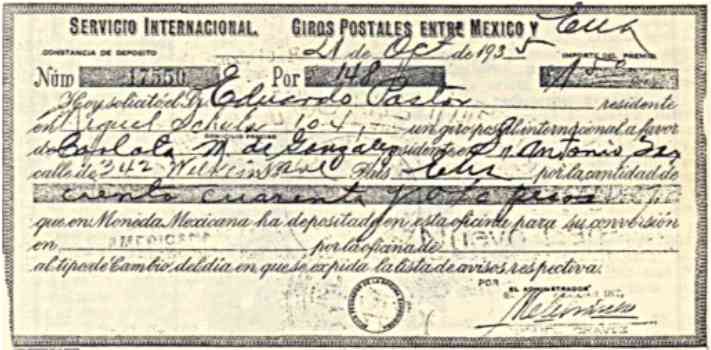 SERVICIO INTERNACIONAL. GIROS POSTALES ENTRE MEXICO Y
CONSTANCIA DE DEPOSITO 21 de Oct de 1935 IMPORTE DEL PREMIO
Núm 17550 Por 148
Hoy solicitó el Sr Eduardo Pastor residente
en Miguel Schulz 104 un giro postal internacional a favor
de Carlota M. de González residente en Sn Antonio Tex
calle de 342 País por la cantidad de
ciento cuarenta y ocho pesos
que en Moneda Mexicana ha depositado en esta oficina para su conversión
en por la oficina de
AMERICANA
al tipo de Cambio, del día en que se expida la lista de avisos respectiva.
POR EL ADMINISTRADOR